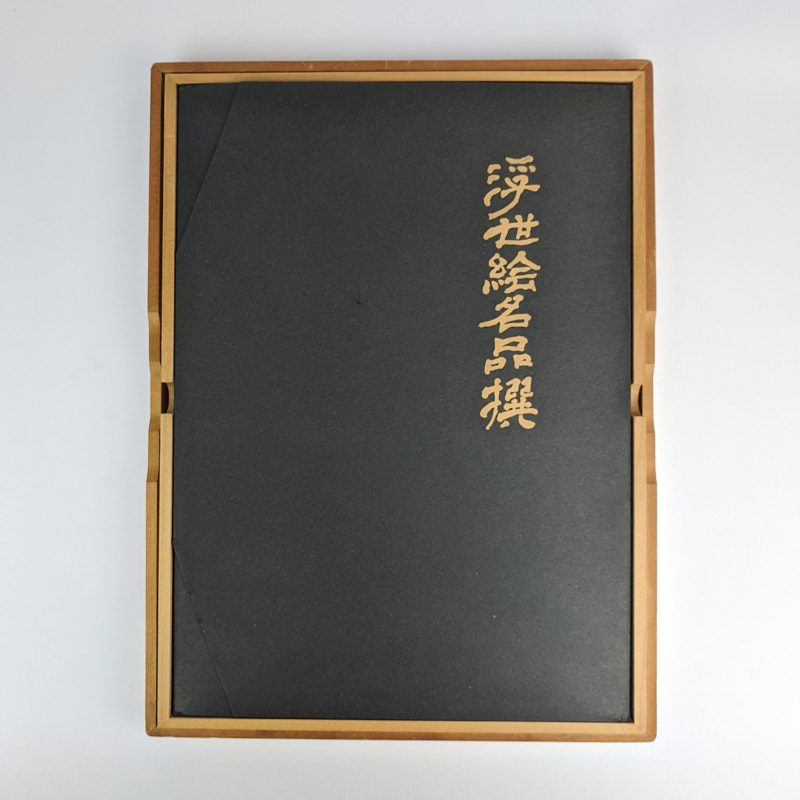 浮世絵名品撰